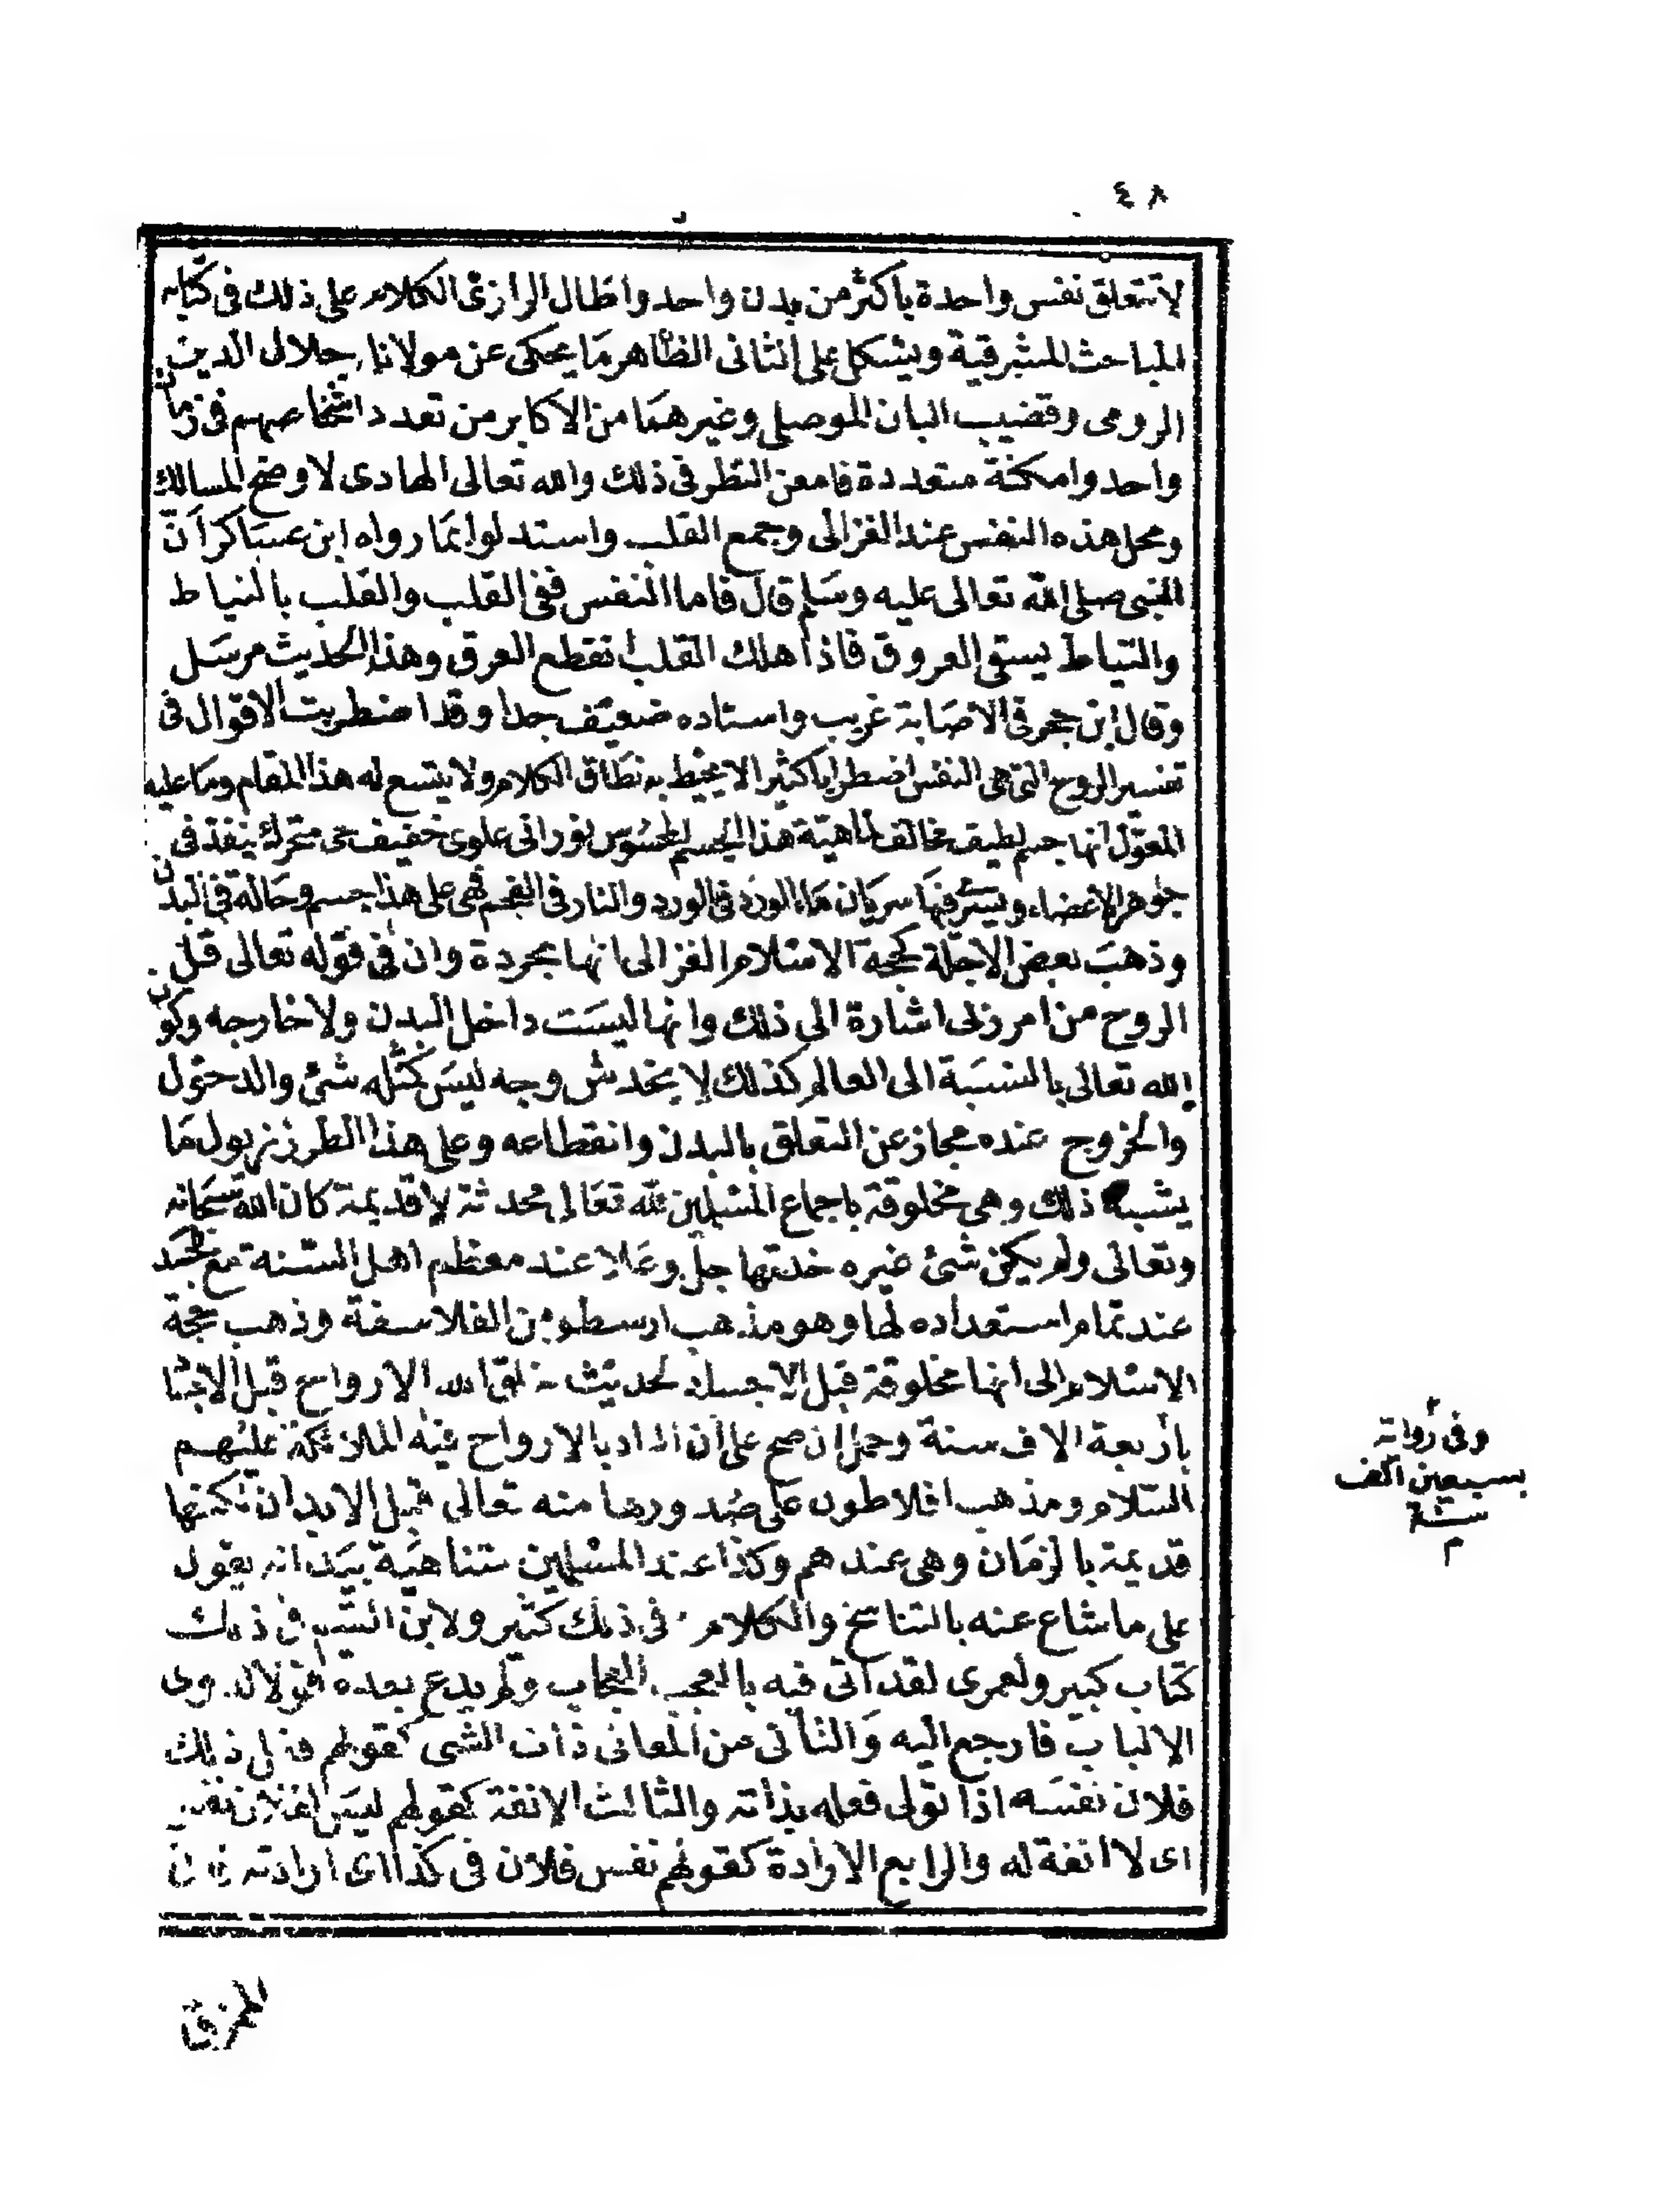 ٤٨
لا تتعلق نفس واحدة باكثر من بدن واحد واطال الرازى الكلام على ذلك فى كتابه
المباحث المشرقية ويشكل على الثانى الظاهر ما يحكى عن مولانا جلال الدين
الرومى وقضيب البان الموصلى وغيرهما من الاكابر من تعدد اشخاصهم فى زمان
واحد وامكنة متعددة فامعن النظر فى ذلك والله تعالى الهادى لاوضح المسالك
ومحل هذه النفس عند الغزالى وجمع القلب واستدلوا بما رواه ابن عساكر أن
النبى صلى الله تعالى عليه وسلم قال فاما النفس ففى القلب والقلب بالنياط
والنياط يسقى العروق فاذا هلك القلب انقطع العرق وهذا الحديث مرسل
وقال ابن حجر فى الاصابة غريب واسناده ضعيف جدا وقد اضطربت الاقوال فى
تفسير الروح التى هى النفس اضطرابا كثيرا لا يحيط به نطاق الكلام ولا يتسع له هذا المقام وما عليه
المعوّل انها جسم لطيف مخالف لماهية هذا الجسم المحسوس نورانى علوى خفيف حى متحرك ينفذ فى
جوهر الاعضاء ويسرى فيها سريان ماء الورد فى الورد والنار فى الفحم فهى على هذا جسم وحالة فى البدن
وذهب بعض الاجلة كحجة الاسلام الغزالى انها مجردة وان فى قوله تعالى قل
الروح من امر ربى اشارة الى ذلك وانها ليست داخل البدن ولا خارجه وكون
الله تعالى بالنسبة الى العالم كذلك لا يخدش وجه ليس كمثله شئ والدخول
والخروج عنده مجاز عن التعلق بالبدن وانقطاعه وعلى هذا الطرز نزول ما
يشبه ذلك وهى مخلوقة باجماع المسلمين لله تعالى محدثة لا قديمة كان الله سبحانه
وتعالى ولم يكن شئ غيره خلقها جل وعلا عند معظم اهل السنة مع الجسد
عند تمام استعداده لها وهو مذهب ارسطو من الفلاسفة وذهب حجة
الاسلام الى انها مخلوقة قبل الاجساد لحديث خلق الله الارواح قبل الاجسا
باربعة الاف سنة وحمل ان صح على ان المراد بالارواح فيه الملائكة عليهم
السلام ومذهب افلاطون على صدورها منه تعالى قبل الابدان لكنها
قديمة بالزمان وهى عندهم وكذا عند المسلمين متناهية بيد انه يقول
على ما شاع عنه بالتناسخ والكلام فى ذلك كثير ولابن القيم فى ذلك
كتاب كبير ولعمرى لقد اتى فيه بالعجب العجاب ولم يدع بعده قولا لاولى
الالباب فارجع اليه والثانى من المعانى ذات الشى كقولهم فعل ذلك
فلان نفسه اذا تولى فعله بذاته والثالث الانفة كقولهم ليس لفلان نفس
اى لا انفة له والرابع الارادة كقولهم نفس فلان فى كذا اى ارادته
وفى رواية
بسبعين الف
سنة
م